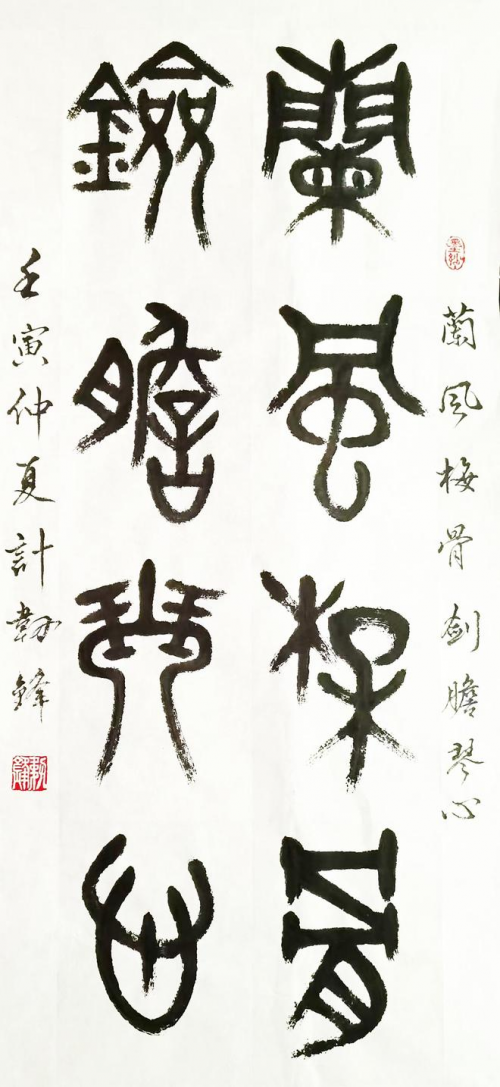 蘭風梅骨劍膽琴心
蘭風梅骨
鐱膽琴心
壬寅仲夏計鋒